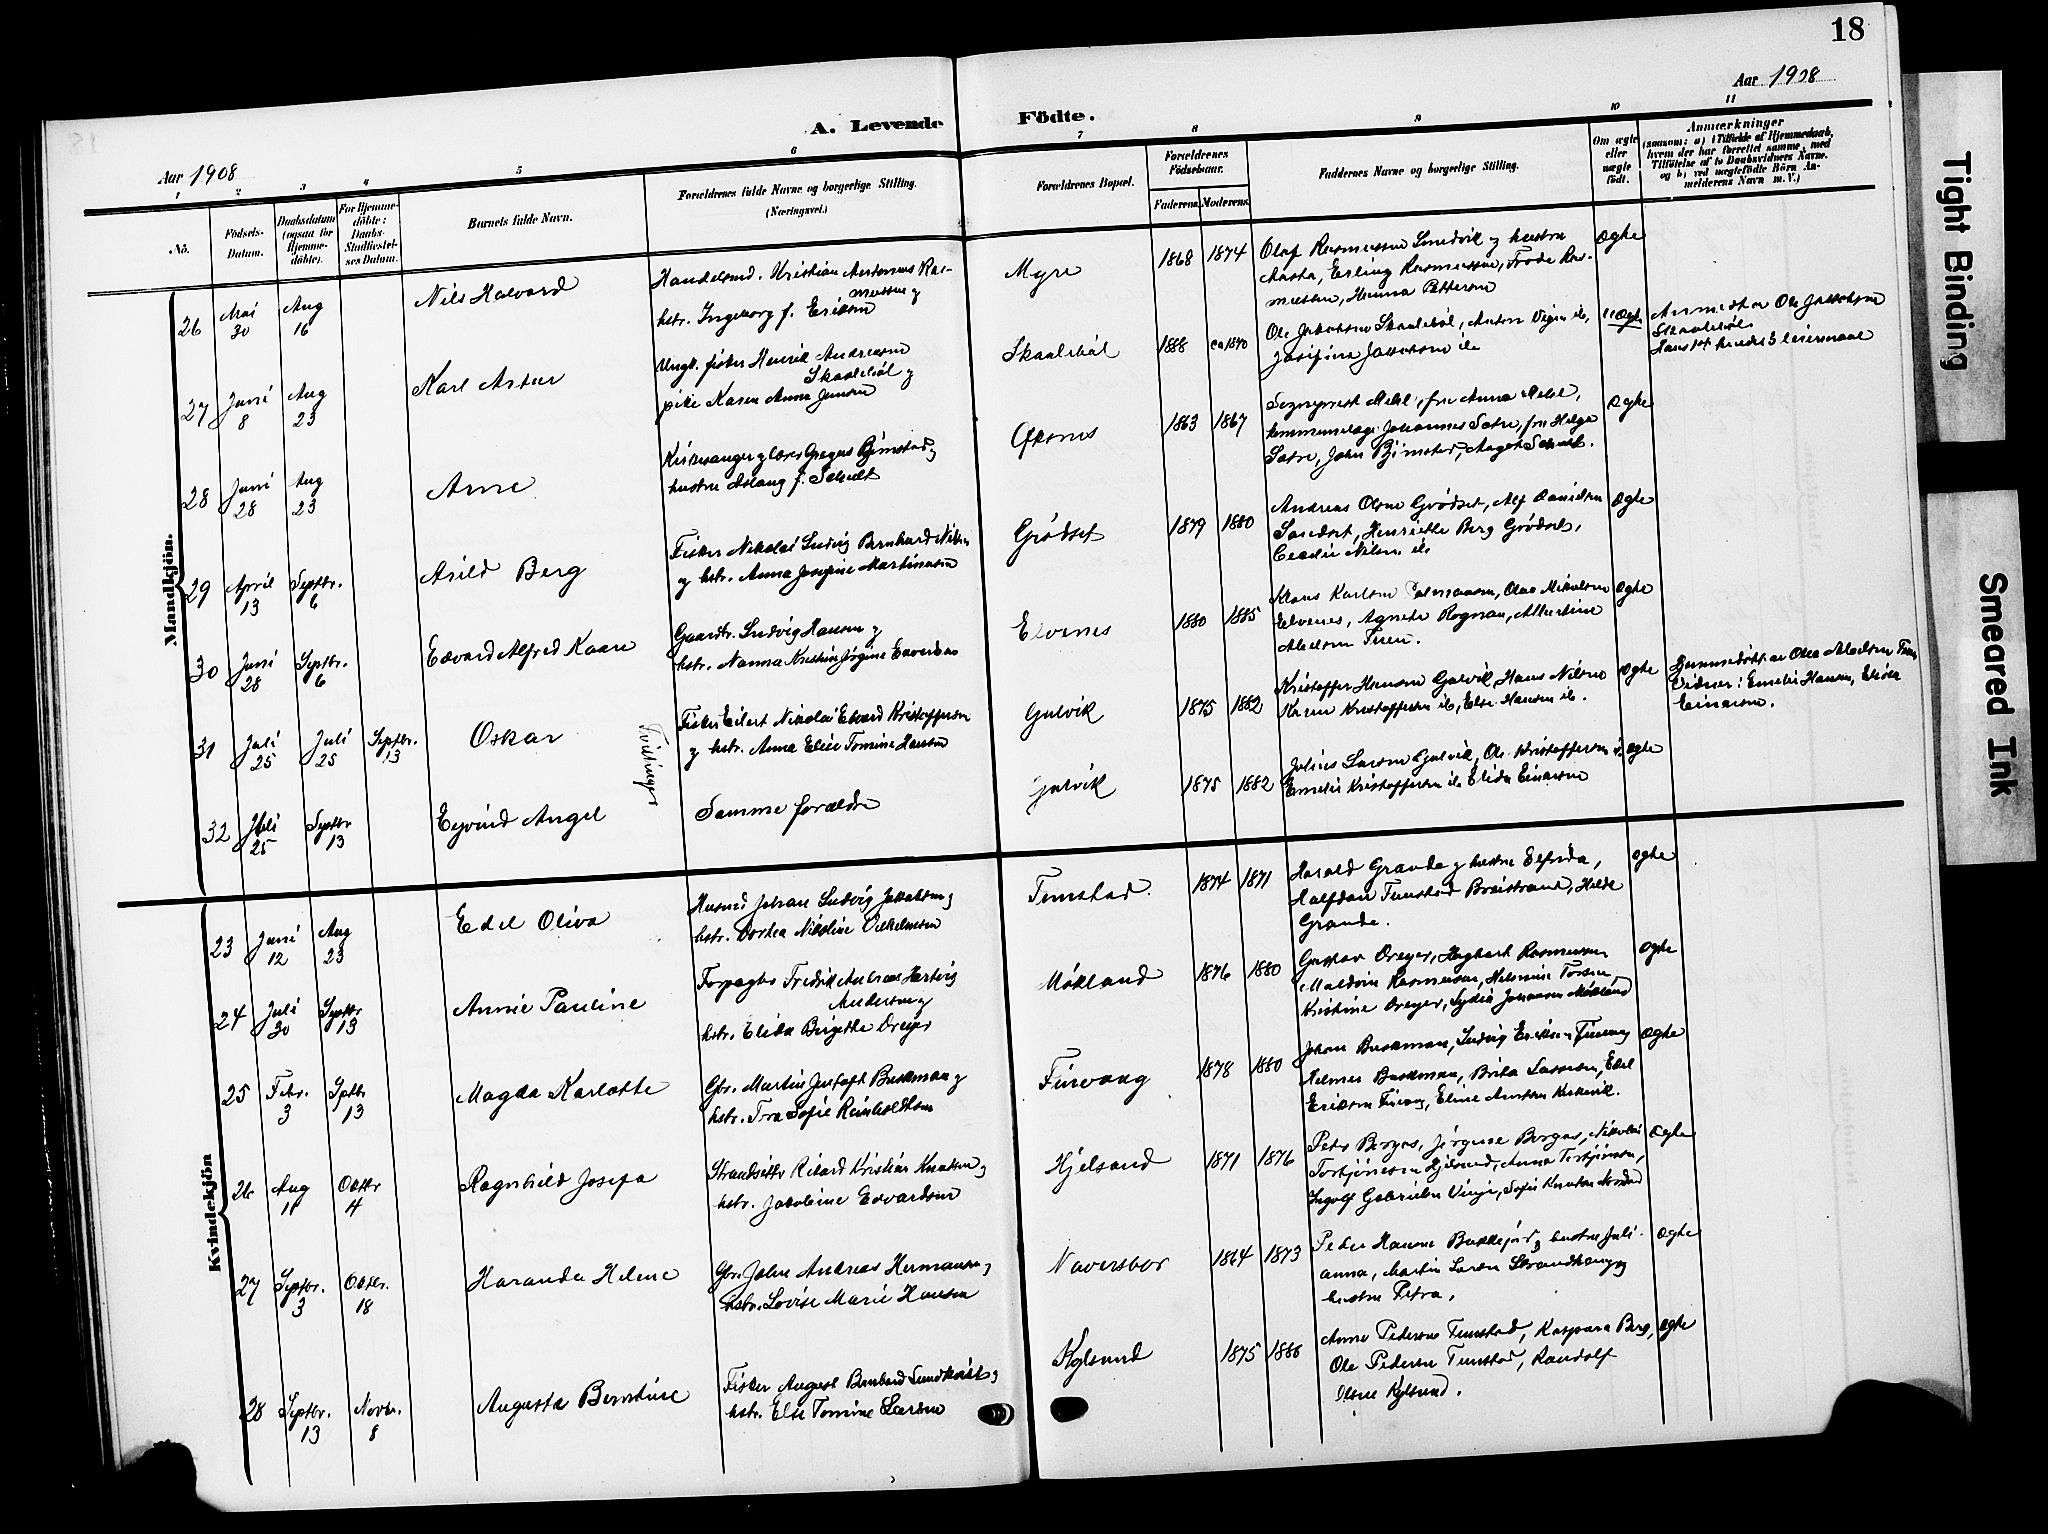 18
Aar 1908
Aar 1908
A. Levende Födte.
1 2 3 4 5 6 7 8 9 10 11
Nö.
Födsels-Datum.
Daabsdatum (ogsaa for Hjemme-döbte).
For Hjemme-döbte: Daabs-Stadfæstel-ses Datum.
Barnets fulde Navn.
Forældrenes fulde Navne og borgerlige Stilling.
(Næringsvei.)
Forældrenes Bopæl.
Forældrenes Födselsaar.
Faderens. Moderens.
Faddernes Navne og borgerlige Stilling.
Om ægte eller uægte födt.
Anmærkninger
(saasom: a) i Tilfælde af Hjemmedaab, hvem der har forrettet samme, med Tilföielse af to Daabsvidners Navne. og b) ved uægtefödte Börn An-melderens Navn m. V.)
Mandkjön.
26 Mai 30 Aug 16 Nils Halvard
Handelsmd. Kristian Antonius Ras-
mussen og
hstr. Ingeborg f. Eriksen
Myre 1868 1874
Olaf Rasmussen Smedvik og hustru
Aasta, Erling Rasmussen, Frode Ras-
mussen, Hanna Pettersen
Ægte
27 Juni 8 Aug 23 Karl Artur
Ungk. fisker Henrik Andreasen
Skaalebøl og
pike Karen Anna Jensen
Skaalebøl 1888 ca 1870
Ole Jakobsen Skaalebøl, Anton Vigen ib,
Josefine Jakobsen ib
uægte
Anmeldt av Ole Jakobsen
Skaalebøl
28 Juni 28 Aug 23 Arne
Kirkesanger og lærer Gregus Bjørnstad og
hustru Aslaug f. Schildt
Øksnes 1863 1867
Sogneprest Mehl, fru Anna Mehl,
kommunelæge Johannes Sætre, fru Helga
Sætre, John Bjørnstad, Aagot Schildt.
Ægte
29 April 13 Septbr. 6 Arild Berg
Fisker Nikolai Ludvig Bernhard Nilsen
og hstr. Anna Josefine Martinsen
Grødset 1879 1880
Andreas Olsen Grødset, Alf Danielsen
Sandset, Henriette Berg Grødset,
Cecelie Nilsen ib
Ægte
30 Juni 28 Septbr. 6 Edvard Alfred Kaare
Gaardbr. Ludvig Hansen og
hstr. Nanna Kristine Jørgine Edvardsen
Elvenes 1880 1885
Klaus Karlsen, Olav Mikalsen
Elvenes, Agnete Rognan, Albertine
Abelsen Tuen.
Ægte
31 Juli 25 Juli 25 Septbr. 13 Oskar
Tvillinger
Fisker Eilert Nikolai Edvard Kristoffersen
og hstr. Anna Elise Tomine Hansen
Gulvik 1875 1882
Kristoffer Hansen Gulvik, Hans Nilsen
Karen Kristoffersen ib, Else Hansen ib.
ægte
Hjemmedøbt av Olea Abelsen Tuen
Vidner: Emelie Hansen, Elida
Einarsen.
32 Juli 25 Septbr 13 Eyvind Angel
Samme forældre
Gulvik 1875 1882
Julius Larsen Gulvik, Ole Kristoffersen ib
Emelie Kristoffersen ib Elida Einarsen
ægte
Kvindekjön
23 Juni 12 Aug 23 Edel Oliva
Husmd Johan Ludvig Jakobsen og
hstr. Dortea Nikoline Vilhelmsen
Tunstad. 1874 1871
Harald Grande og hustru Elfrida,
Halfdan Tunstad Breistrand, Hilda
Grande.
Ægte
24 Juli 30 Septbr 13 Annie Pauline
Forpagter Fredrik Andreas Hartvig
Andersen og
hstr. Elida Birgitte Dreyer
Møkland 1876 1880
Gustav Dreyer, Hagbart Rasmussen
Maldvin Rasmussen, Helmine Torsen
Kristine Dreyer, Sydia Johansen Møkland
Ægte
25 Febr. 3 Sptbr 13 Magda Karlotte
Gbr. Martin Justoft Buskman og
hstr. Tra Sofie Reinholdtsen
Finvaag 1878 1880
Johan Buskman, Ludvig Eriksen Finvaag
Helmer Buskman, Brita Larsen, Edel
Eriksen Finvaag, Eline Antsen Kirkvik.
Ægte
26 Aug 11 Oktbr 4 Ragnhild Josefa
Strandsitter Rikard Kristian Knutsen og
hstr. Jakobine Edvardsen
Hjelsand 1871 1876
Peter Borgas, Jørgine Borgas, Nikolai
Torbjørnsen Hjelsand, Anna Torbjørnsen,
Ingolf Gabrielsen Vinje, Sofie Knutsen
Ægte
27 Septbr. 3 Oktbr. 18 Haranda Helene
Gbr. John Andreas Hermansen og
hstr. Lovise Marie Hansen
Naversbor 1864 1873
Peder Hansen Bakkejord og hustru Juli-
anna, Martin Larsen Strandhaug og
hustru Petra,
Ægte
28 Septbr. 13 Novbr. 8 Augusta Berntine
Fisker August Bernhard Sundkvist og
hstr. Else Tomine Larsen
Kylsund 1875 1886
Anne Pedersen Tunstad, Kaspara Berg,
Ole Pedersen Tunstad, Randolf
Olsen Kylsund.
Ægte
Tight Binding
Smeared Ink